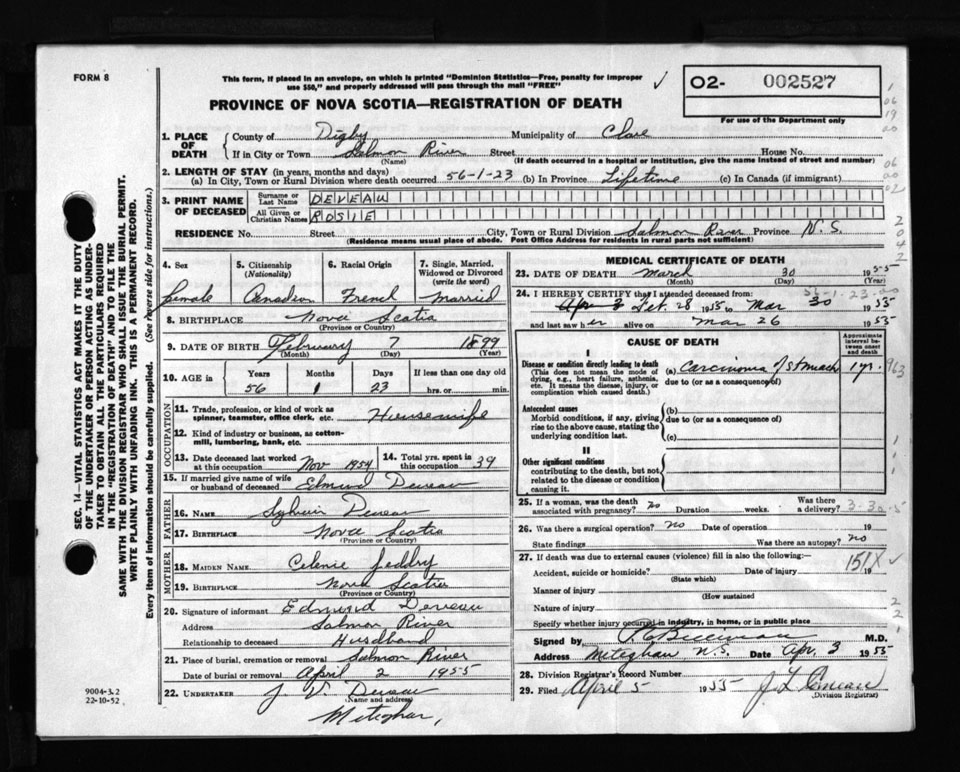 FORM 8
This form, if placed in an envelope, on which is printed "Dominion Statistics—Free, penalty for improper
use $50," and properly addressed will pass through the mail "FREE"
PROVINCE OF NOVA SCOTIA—REGISTRATION OF DEATH
O2- 002527
For use of the Department only
1. PLACE OF DEATH County of Digby Municipality of Clare
If in City or Town Salmon River Street House No.
(Name) (If death occurred in a hospital or institution, give the name instead of street and number)
2. LENGTH OF STAY (in years, months and days)
(a) In City, Town or Rural Division where death occurred 56-1-23 (b) In Province Lifetime (c) In Canada (if immigrant)
3. PRINT NAME OF DECEASED Surname or Last Name DEVEAU
All Given or Christian Names ROSIE
RESIDENCE No. Street City, Town or Rural Division Salmon River Province N.S.
(Residence means usual place of abode. Post Office Address for residents in rural parts not sufficient)
SEC. 14—VITAL STATISTICS ACT MAKES IT THE DUTY
OF THE UNDERTAKER OR PERSON ACTING AS UNDER-
TAKER TO OBTAIN ALL THE PARTICULARS REQUIRED
IN THE "REGISTRATION OF DEATH" AND TO FILE THE
SAME WITH THE DIVISION REGISTRAR WHO SHALL ISSUE THE BURIAL PERMIT.
WRITE PLAINLY WITH UNFADING INK. THIS IS A PERMANENT RECORD.
Every item of information should be carefully supplied. (See reverse side for instructions.)
4. Sex 5. Citizenship (Nationality) 6. Racial Origin 7. Single, Married, Widowed or Divorced (write the word)
female Canadian French Married
8. BIRTHPLACE Nova Scotia
(Province or Country)
9. DATE OF BIRTH February 7 1899
(Month) (Day) (Year)
10. AGE in Years Months Days If less than one day old
56 1 23 hrs. or min.
OCCUPATION
11. Trade, profession, or kind of work as spinner, teamster, office clerk, etc. Housewife
12. Kind of industry or business, as cotton-mill, lumbering, bank, etc.
13. Date deceased last worked at this occupation Nov 1954 14. Total yrs. spent in this occupation 39
15. If married give name of wife or husband of deceased Edmund Deveau
FATHER
16. NAME Sylvain Deveau
17. BIRTHPLACE Nova Scotia
(Province or Country)
MOTHER
18. MAIDEN NAME Celenie Jeddry
19. BIRTHPLACE Nova Scotia
(Province or Country)
20. Signature of informant Edmund Deveau
Address Salmon River
Relationship to deceased Husdband
21. Place of burial, cremation or removal Salmon River
Date of burial or removal April 2 1955
22. UNDERTAKER J V. Deveau
(Name and address)
Meteghan,
9004-3.2
22-10-52
MEDICAL CERTIFICATE OF DEATH
23. DATE OF DEATH March 30 1955
(Month) (Day) (Year)
56-1-23
24. I HEREBY CERTIFY that I attended deceased from:
Apr 3 Set. 28 1955 to Mar 30 1955
and last saw her alive on Mar 26 1955
CAUSE OF DEATH Approximate interval between onset and death
I
Disease or condition directly leading to death (a) Carcinoma of stomach 1 yr. 963
(This does not mean the mode of dying, e.g., heart failure, asthenia, etc. It means the disease, injury, or complication which caused death.) due to (or as a consequence of)
Antecedent causes (b)
Morbid conditions, if any, giving rise to the above cause, stating the underlying condition last. due to (or as a consequence of)
(c)
II
Other significant conditions
contributing to the death, but not related to the disease or condition causing it.
25. If a woman, was the death associated with pregnancy? no Duration weeks. Was there a delivery? 3-30-5
26. Was there a surgical operation? no Date of operation 19
State findings Was there an autopsy? no
27. If death was due to external causes (violence) fill in also the following:— 151X
Accident, suicide or homicide? Date of injury 19
(State which)
Manner of injury
(How sustained
Nature of injury
Specify whether injury occurred in industry, in home, or in public place
Signed by M.D.
Address Meteghan N.S. Date Apr. 3 1955
28. Division Registrar's Record Number
29. Filed April 5 1955 J L Comeau
(Division Registrar)